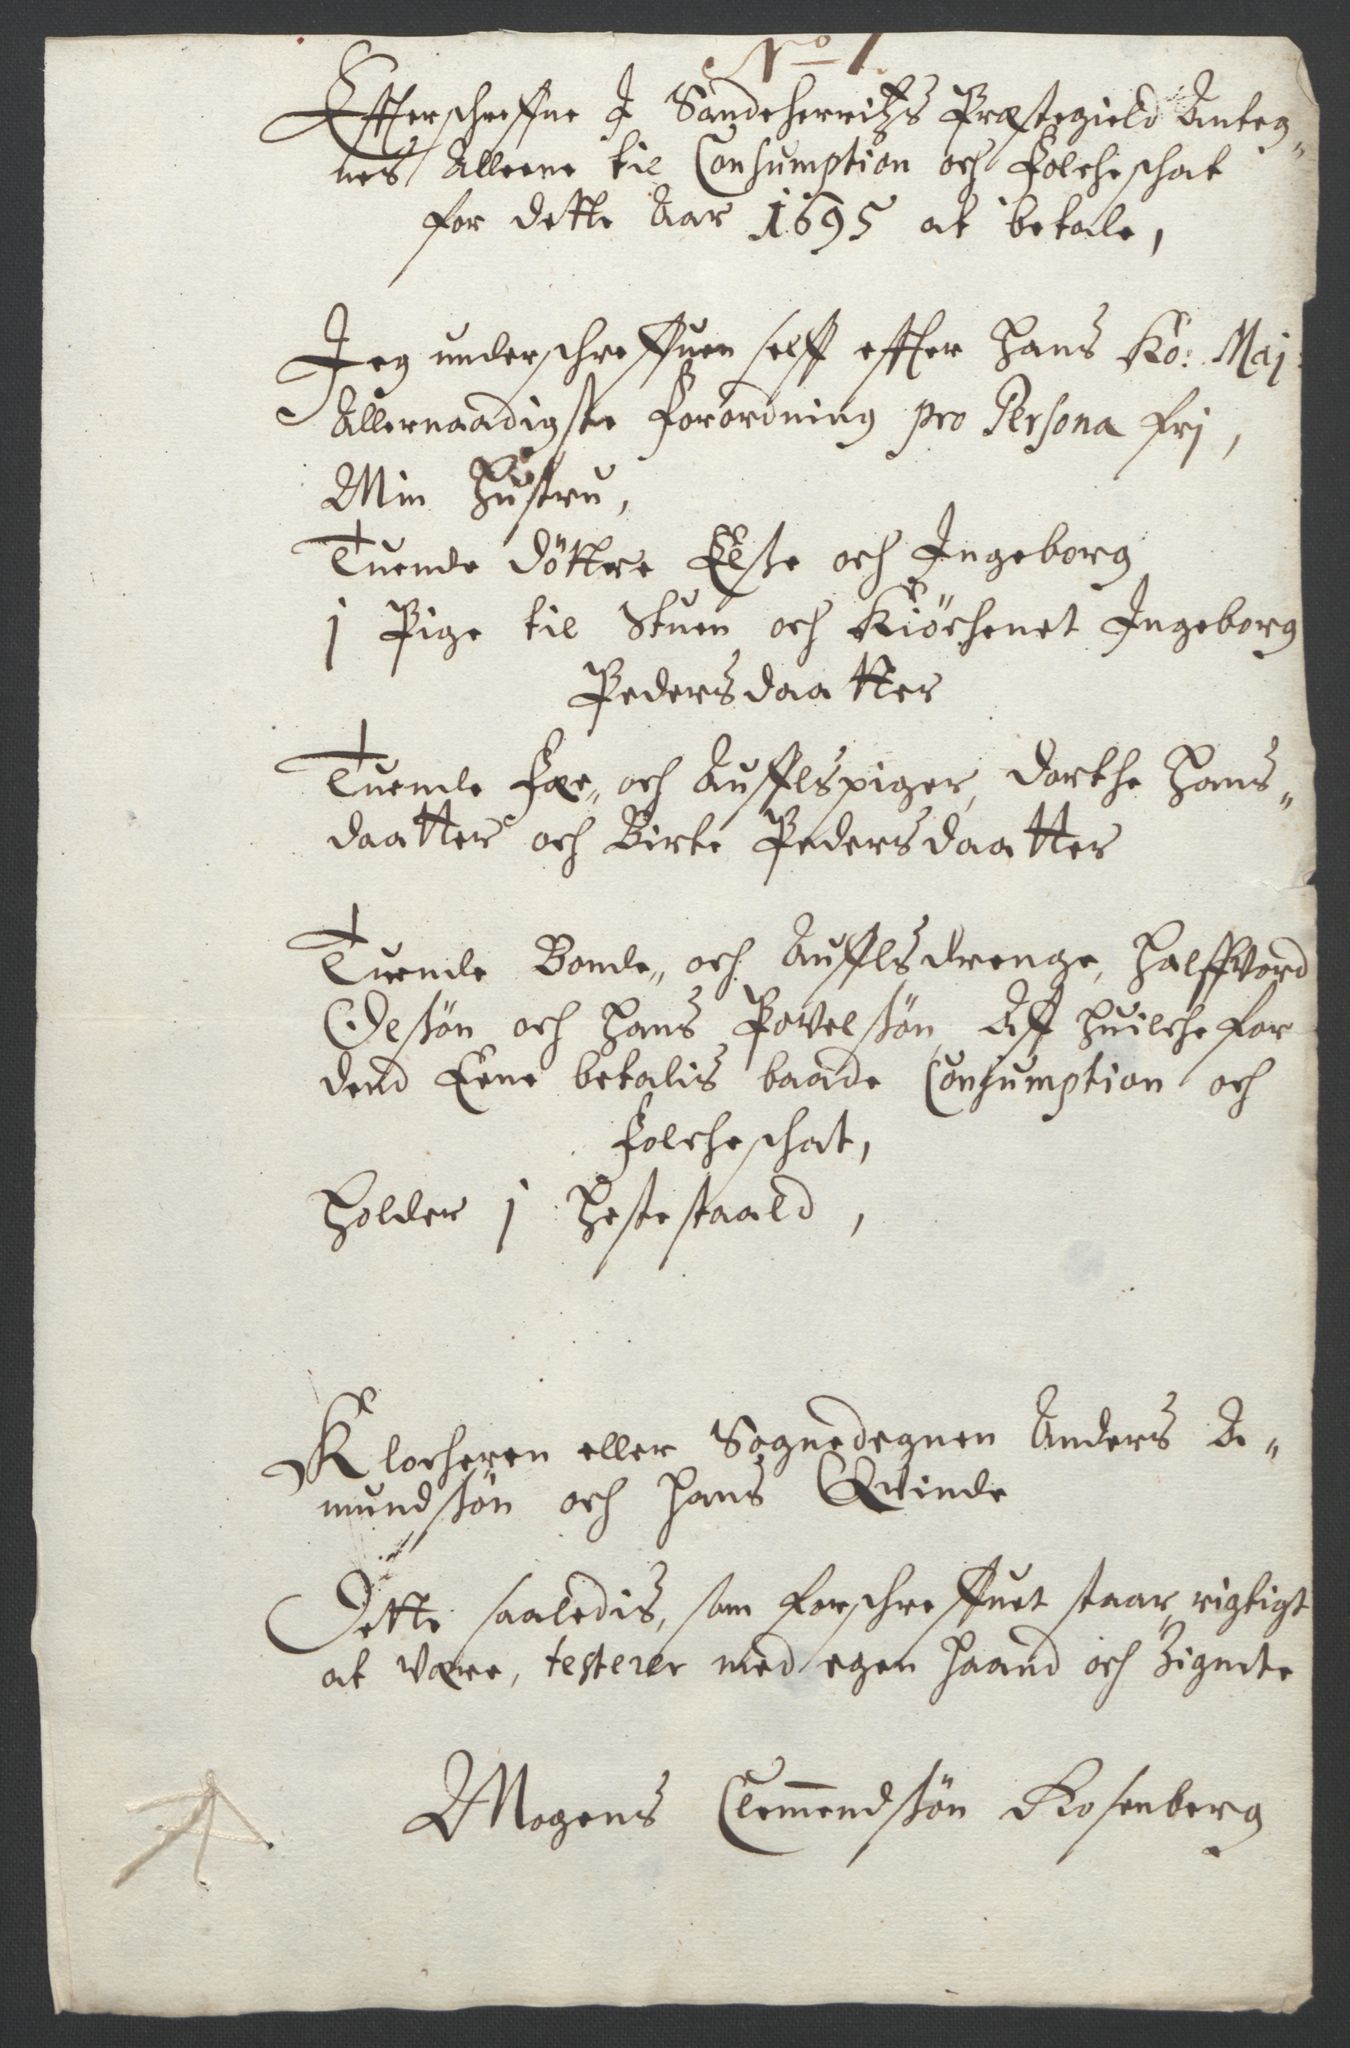 No 1
Effterschreffne I Sandeherritzs Præstegield Anteg„
nes Alleene til Consumption och Folcheschat
for dette Aar 1695 at betale,
Jeg underschreffuen self effter Hans Kö: Maj:
Allernaadigste Forordning pro Persona frj,
Min Hustru,
Tuende döttre Else och Ingeborg
1 Pige til Stuen och Kiöchenet Ingeborg
Pedersdaatter
Tuende Fæe„ och Auffls piger, Dorthe Hans„
daatter och Birte Pedersdaatter
Tuende Bonde„ och Aufflsdrenge, Halffvord
Olssön och Hans Povelssön Aff huilche for
dend Eene betalis baade Consumption och
Folcheschat,
Holder 1 Hestestaald,
Klocheren eller Sognedegnen Anders A„
mundssön och Hans Qvinde
Dette saaledis, som forschreffuet staar, rigtigt
at være, testerer med egen Haand och Zignete
Mogens Clemmendssön Rosenberg